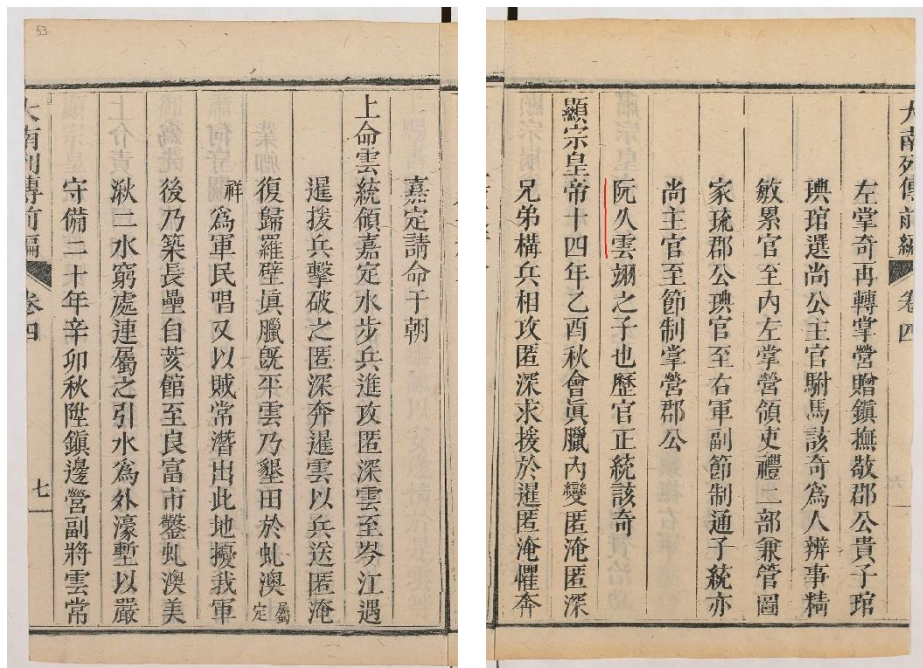 大南列傳前編
卷四
六
左掌奇再轉掌營贈鎮撫敬郡公貴子琯
琠琯選尚公主官駙馬該奇為人辨事精
敏累官至內左掌營領吏禮二部兼管圖
家琉郡公琠官至右軍副節制通子統亦
尚主官至節制掌營郡公
阮久雲翊之子也歷官正統該奇
顯宗皇帝十四年乙酉秋會眞臘內變匿淹匿深
兄弟構兵相攻匿深求援於暹匿淹懼奔
53
嘉定請命于朝
上命雲統領嘉定水步兵進攻匿深雲至岑江遇
暹援兵擊破之匿深奔暹雲以兵送匿淹
復歸羅壁眞臘旣平雲乃墾田於虬澳屬定
祥為軍民唱又以賊常潛出此地擾我軍
後乃築長壘自茭館至良富市鑿虬澳美
湫二水窮處連屬之引水為外濠塹以嚴
守備二十年辛卯秋陞鎮邊營副將雲常
大南列傳前編
卷四
七